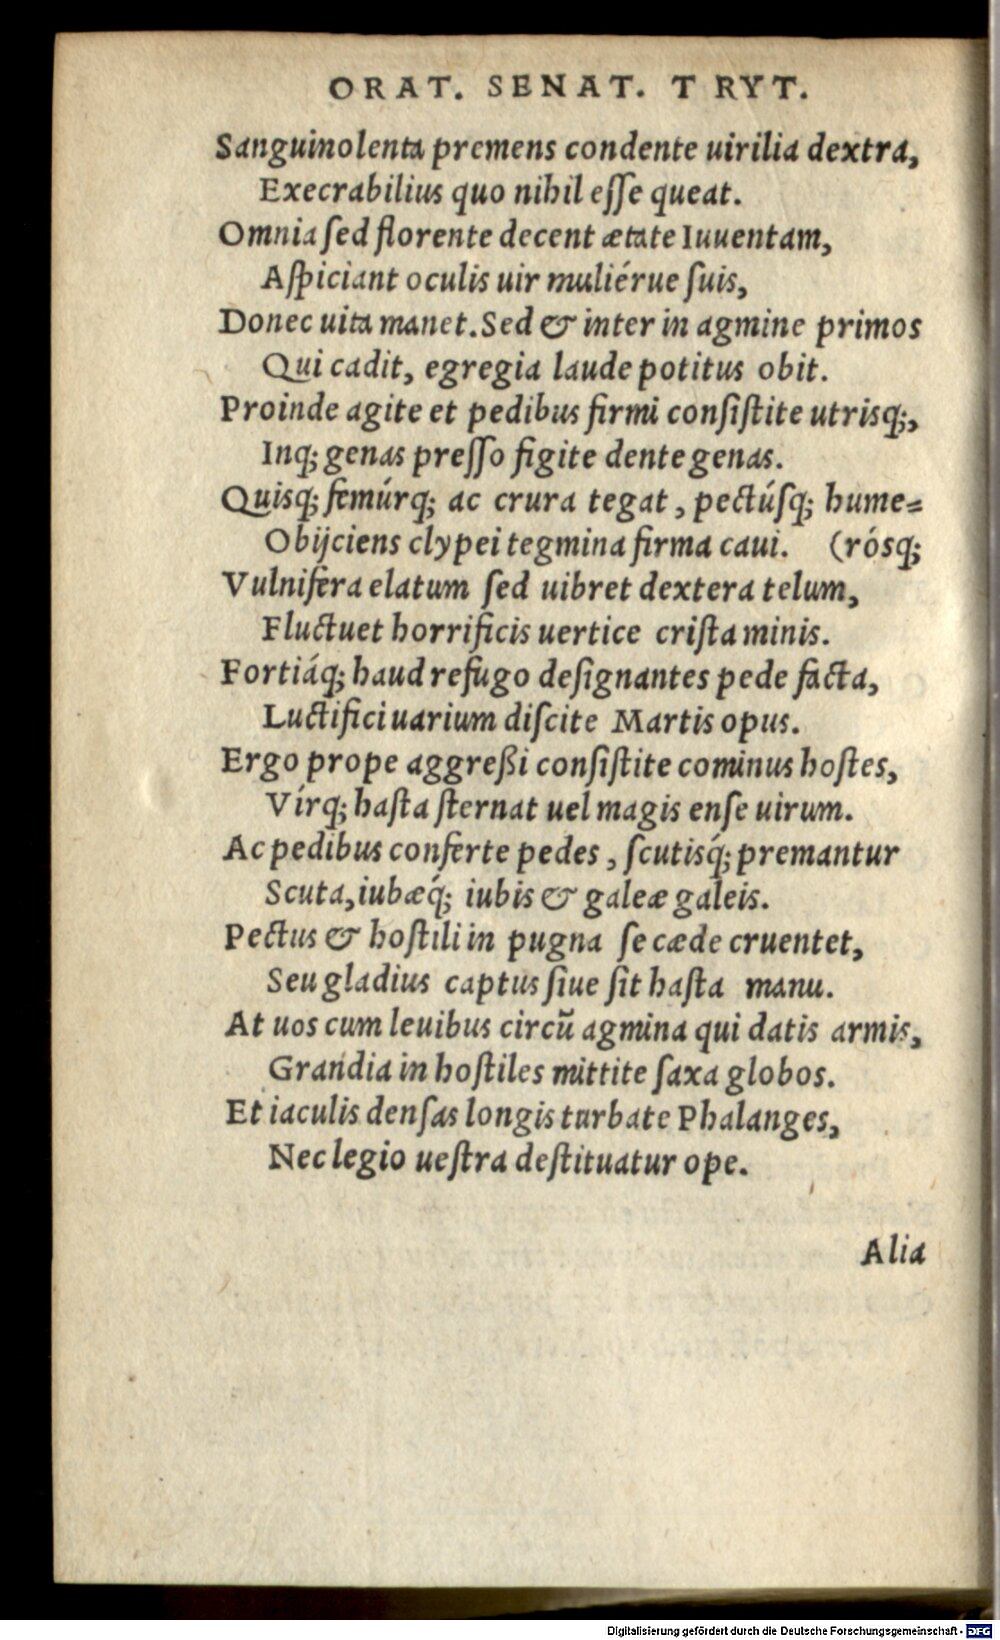 ORAT. SENAT. TRYT.
Sanguinolenta premens condente uirilia dextra,
Execrabilius quo nihil eſſe queat.
Omnia ſed florente decent ætate Iuuentam,
Aſpiciant oculis uir muliérue ſuis,
Donec uita manet. Sed & inter in agmine primos
Qui cadit, egregia laude potitus obit.
Proinde agite et pedibus firmi conſiſtite utrisq;,
Inq; genas preſſo figite dente genas.
Quisq; femúrq; ac crura tegat, pectúſq; hume=
Obijciens clypei tegmina firma caui. (rósq;
Vulnifera elatum ſed uibret dextera telum,
Fluctuet horrificis uertice criſta minis.
Fortiáq; haud refugo deſignantes pede facta,
Luctifici uarium diſcite Martis opus.
Ergo prope aggreßi conſiſtite cominus hoſtes,
Vírq; haſta ſternat uel magis enſe uirum.
Ac pedibus conferte pedes, ſcutisq́; premantur
Scuta, iubæq́; iubis & galeæ galeis.
Pectus & hoſtili in pugna ſe cæde cruentet,
Seu gladius captus ſiue ſit haſta manu.
At uos cum leuibus circũ agmina qui datis armis,
Grandia in hoſtiles mittite ſaxa globos.
Et iaculis denſas longis turbate Phalanges,
Nec legio ueſtra deſtituatur ope.
Alia
Digitalisierung gefördert durch die Deutsche Forschungsgemeinschaft - DFG